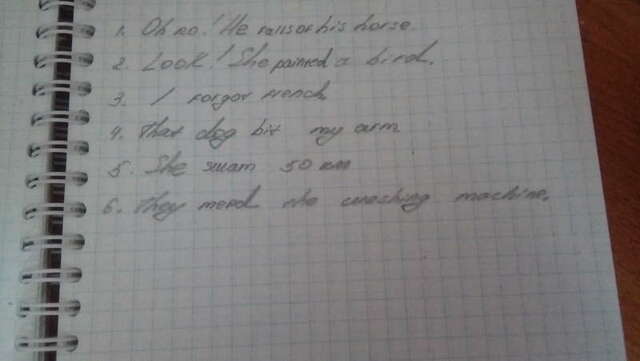 1. Oh no! He falls of his horse.
2. Look! She painted a bird.
3. I forgot french
4. That dog bit my arm
5. She swam 50 km
6. They mend the washing machine.